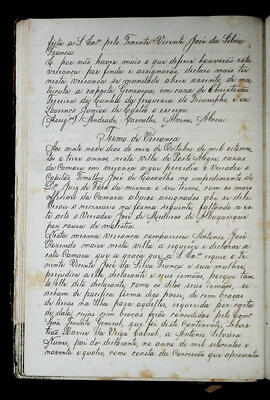 feita a S. Cª. pelo Tenente Vicente José da Silva
França
E por não haver mais o que deferir houverão esta
vereança por finda e assignação, declaro mais ter
nesta vereança se mandado abrir assento de ma
tricula a rapota em casa de Christovão
Ferreira da Cunha da freguezia do Triumpho, e eu
Lourenço Junior de Castro o escrevi
Andrade, Carvalho, Alvim, Abreu
Termo de Vereança
Aos vinte nove dias do mez de Outubro de mil oitocen
tos e treze annos, nesta villa de Porto Alegre, casas
da Camara em vereança a que presidio o Vereador
Capitão Timotheo José de Carvalho no impedimento do
Dr. Juiz de Fóra da mesma e seu termo, com os mais
officiaes da Camara abaixo assignados afim se deli
berou o necessario na forma seguinte, faltando a es
te acto o Vereador José de Medeiros de Albuquerque
por causa de molestia
Nesta mesma vereança compareceu Antonio José
Machado mózo nesta villa a siguição e declarou a
esta Camara que a graça que a S. Cª. segue o Te
nente Vicente José da Silva França e sua mulher,
prejudica a elle declarante e seus irmãos, porque tan
to elle dito declarante como os ditos seus irmãos, se
achão de pacifica forma das posses, de cem braças
de terras na Ilha para aquelles, segurada por carta
de datas, cujas cem braças forão concedidas pelo Exmo.
Snr. Tenente General, que foi deste Continente, Sebas
tião Xavier da Veiga Cabral, a Antonio Silveira
Nunes, pai do declarante, no anno de mil setecentos e
noventa e quatro, como consta da Concessão que apresenta